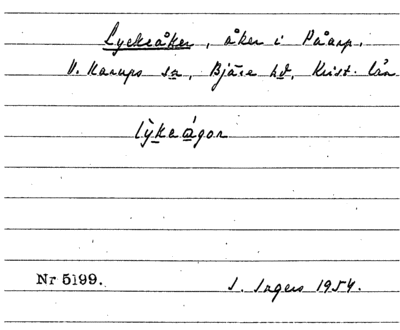 Lyckeåker, åker i Påarp.
V. Karups sn, Bjäre hd, Krist. län
lỳkeágor
Nr 5199.
I. Ingers 1954.